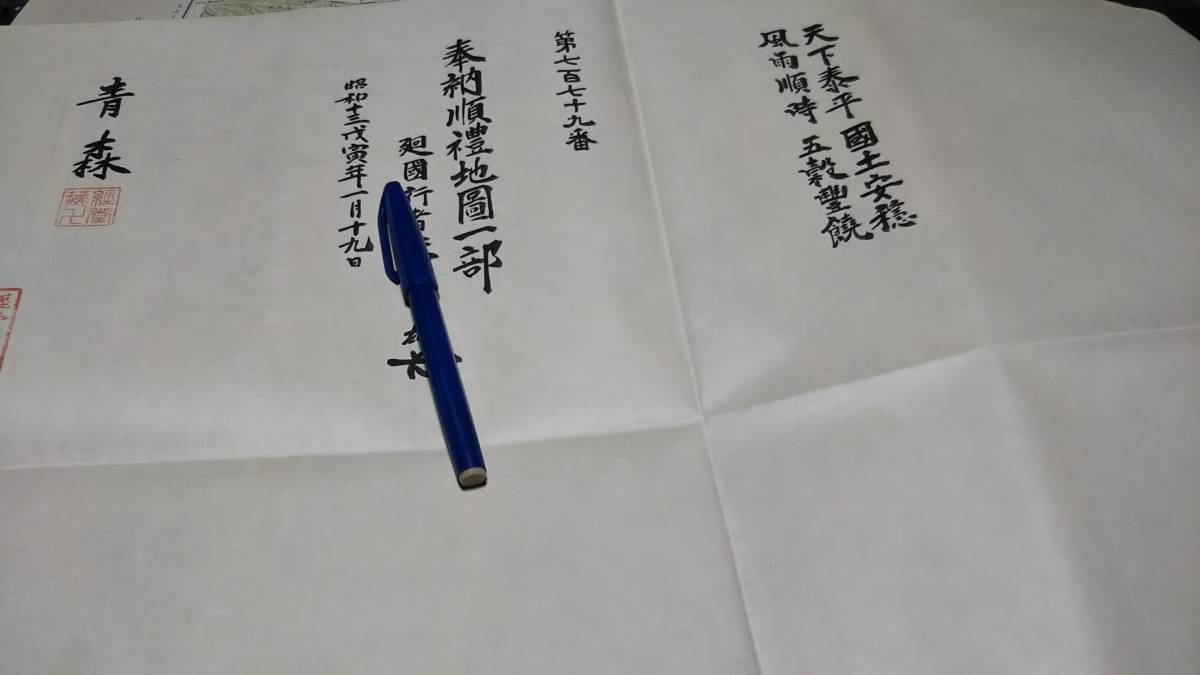 天下泰平 國土安穏
風雨順時 五穀豐饒
第七百七十九番
奉納順禮地圖一部
廻國行者
昭和十三戊寅年一月十九日
青森
經堂
藏